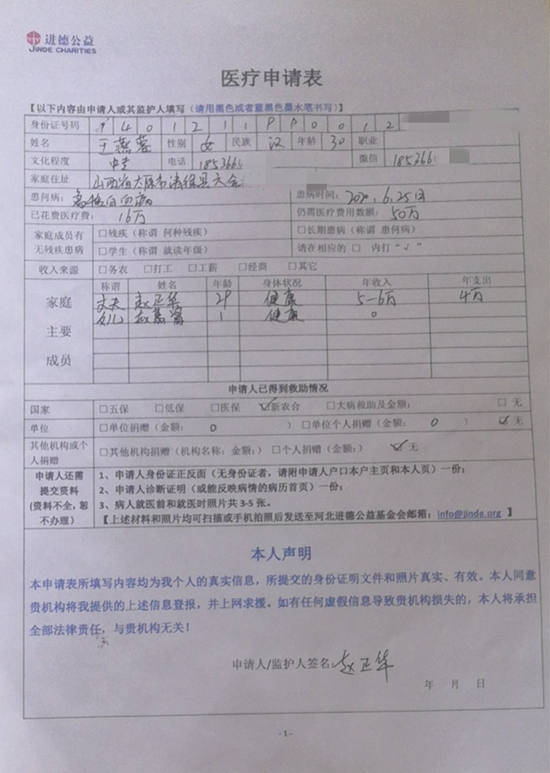 进德公益
JINDE CHARITIES
医疗申请表
【以下内容由申请人或其监护人填写(请用黑色或者蓝黑色墨水笔书写)】
身份证号码 1 4 0 1 2 1 1 0 0 1 2
姓名 燕蓉 性别 女 民族 汉 年龄 30 职业
文化程度 中专 电话 185366 微信 185366
家庭住址 山西省太原市清徐县大会
患何病: 急性白血病 患病时间: 2020.6.25日
已花费医疗费: 16万 仍需医疗费用数额: 50万
家庭成员有无残疾患病 □残疾(称谓 何种残疾) □长期患病(称谓 患何病)
□学生(称谓 就读年级) 请在相应的 □ 内打"√"
收入来源 □务农 □打工 □工薪 □经商 □其它
家庭主要成员 称谓 姓名 年龄 身体状况 年收入 年支出
丈夫 赵正华 29 健康 5-6万 4万
女儿 赵 1 健康 0
申请人已得到救助情况
国家 □五保 □低保 □医保 ☑新农合 □大病救助及金额: □无
单位 □单位捐赠(金额: 0 ) □单位个人捐赠(金额: 0 ) ☑无
其他机构或个人捐赠 □其他机构捐赠(机构名称:金额:) □个人捐赠(金额:) ☑无
申请人还需提交资料(资料不全,恕不办理)
1、申请人身份证正反面(无身份证者,请附申请人户口本户主页和本人页)一份;
2、申请人诊断证明(或能反映病情的病历首页)一份;
3、病人就医前和就医时照片共3-5张。
【上述材料和照片均可扫描或手机拍照后发送至河北进德公益基金会邮箱:info@jinde.org】
本人声明
本申请表所填写内容均为我个人的真实信息,所提交的身份证明文件和照片真实、有效。本人同意
贵机构将我提供的上述信息登报,并上网求援。如有任何虚假信息导致贵机构损失的,本人将承担
全部法律责任,与贵机构无关!
申请人/监护人签名: 赵正华
年 月 日
- 1 -